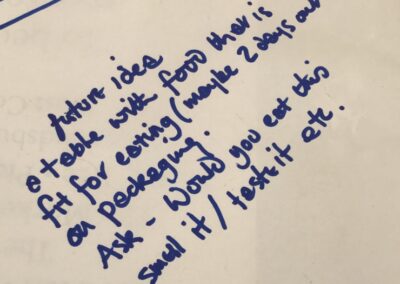 future idea
a table with food that is
fit for eating (maybe 2 days out
on packaging.
Ask - Would you eat this
smell it / taste it etc.